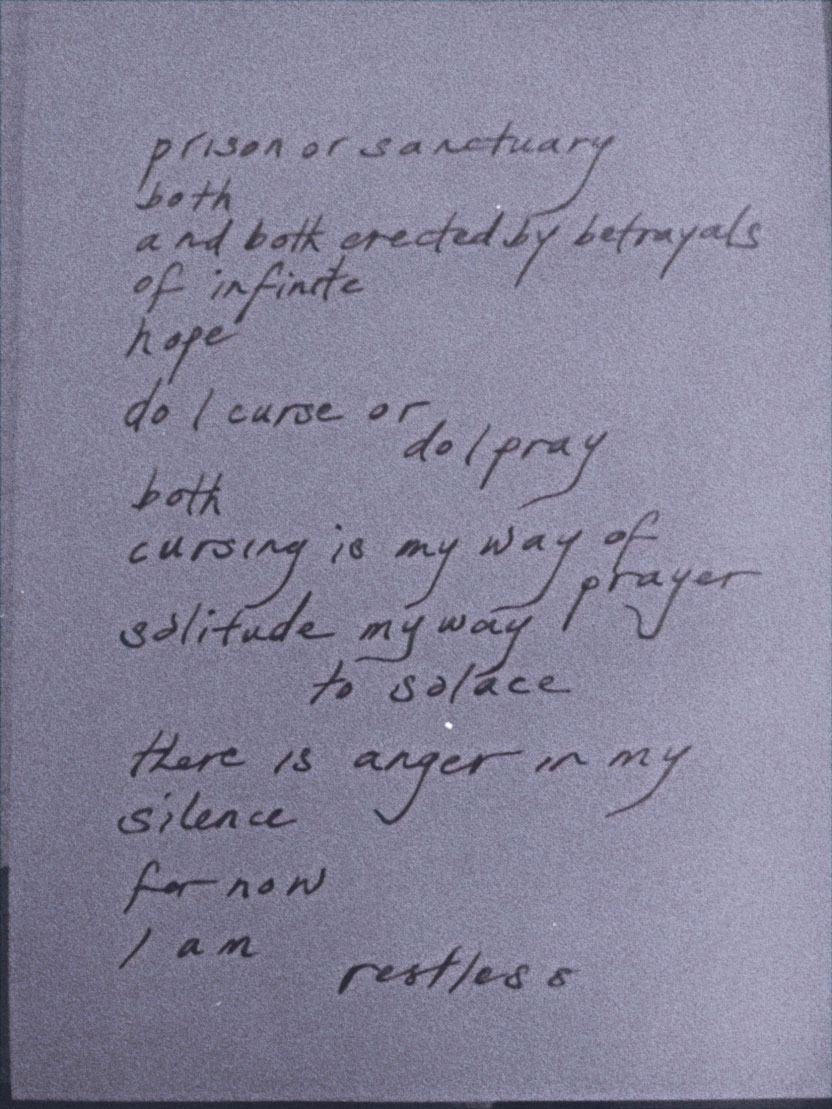 prison or sanctuary
both
and both erected by betrayals
of infinite
hope
do I curse or
do I pray
both
cursing is my way of
prayer
solitude my way
to solace
there is anger in my
silence
for now
I am
restless